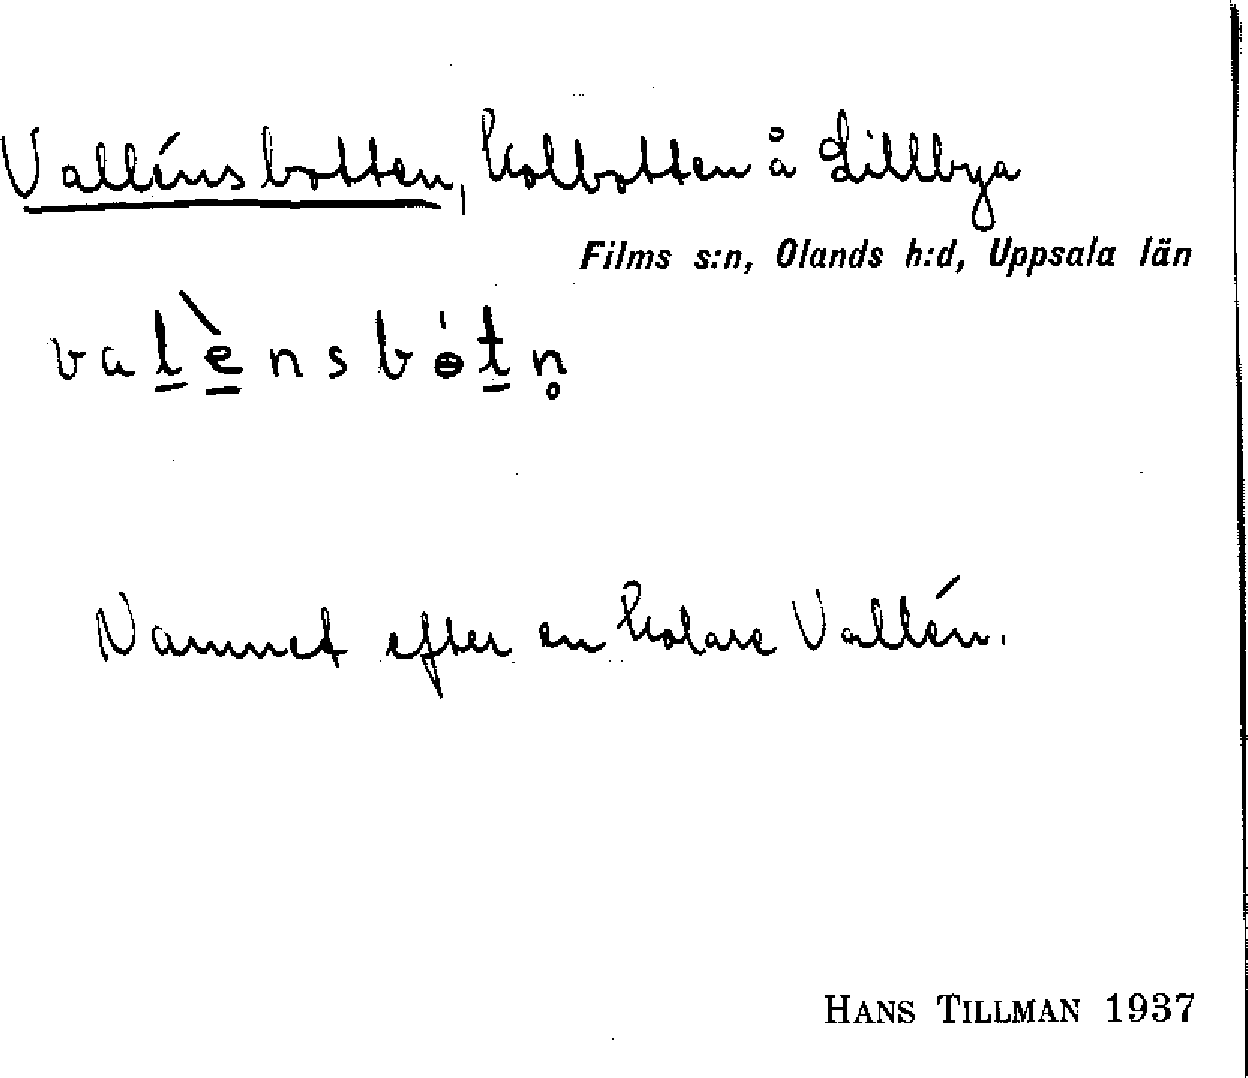 Valléns botten, Kolbotten å Lillbya
Films s:n, Olands h:d, Uppsala län
valènsbɵ́tn̥
Namnet efter en kolare Vallén.
HANS TILLMAN 1937